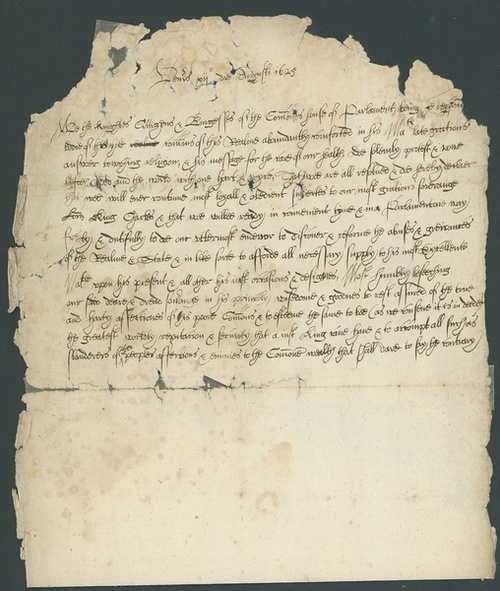 Veneris xii° die Augusti 1625
We the knights Citizens & Burgesses of the Comons house of Parliament, being ye
bodie of the whole comons of this Realme abundantly comforted in his Ma^ts late gratious
answer touching religion, & his message for the care of our healths, doe solemnly protest & vowe
before God and the world with one hart & voyce, that wee are all resolved & doe hereby declare
that wee will ever contynue most loyall & obedient subiects to our most gratious soveraigne
Lord King Charles & that we wilbe ready in convenient tyme & in a Parlamentarie way
freely & dutifully to doe our uttermost endevor to discover & reforme the abuses & greevances
of the Realme & State & in like sorte to afforde all necessary supply to his most Excellente
Ma^tie upon his present & all other his iust occasions & designes, Most humbly beseching
our deere & dread soveraigne in his princely wisdome & goodnes to rest assured of the true
and harty affections of his poore Comons & to esteeme the same to bee (as we conceive it is in deede)
the greatest worldly reputation & security that a iust King can have & to accompt all such as
slanderers of the peoples affections & enimies to the Comon wealth that shall dare to say the contrary